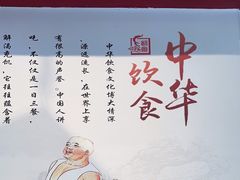 中华
饮食
中华饮食文化博大精深
、源远流长，在世界上享
有很高的声誉。中国人讲
吃，不仅仅是一日三餐，
解渴充饥，它往往蕴含着